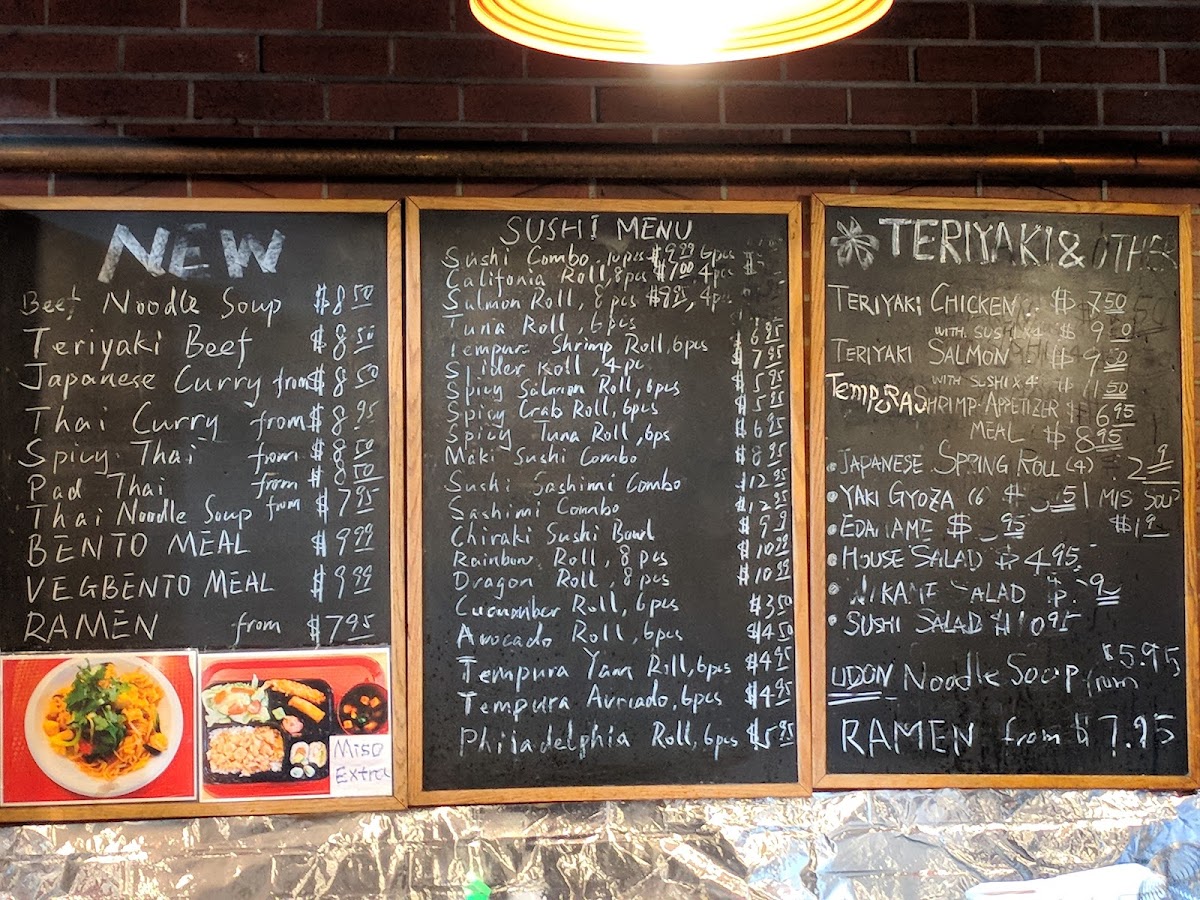 NEW
Beef Noodle Soup $8.50
Teriyaki Beef $8.50
Japanese Curry from $8.50
Thai Curry from $8.95
Spicy Thai from $8.50
Pad Thai from $8.50
Thai Noodle Soup from $7.95
BENTO MEAL $9.99
VEGBENTO MEAL $9.99
RAMEN from $7.95
Miso
Extra
SUSHI MENU
Sushi Combo, 10pcs $9.99 6pcs
Califonia Roll, 8pcs $7.00 4pc
Salmon Roll, 8pcs $8.95, 4pc
Tuna Roll, 6pcs
Tempura Shrimp Roll, 6pcs $6.95
Spider Roll, 4pc $7.95
Spicy Salmon Roll, 6pcs $5.95
Spicy Crab Roll, 6pcs $5.95
Spicy Tuna Roll, 6ps $6.95
Maki Sushi Combo $8.95
Sushi Sashimi Combo $12.95
Sashimi Combo $12.95
Chiraki Sushi Bowl
Rainbow Roll, 8pcs $10.99
Dragon Roll, 8pcs $10.99
Cucumber Roll, 6pcs $3.50
Avocado Roll, 6pcs $4.50
Tempura Yam Roll, 6pcs $4.95
Tempura Avricado, 6pcs $4.95
Philadelphia Roll, 6pcs $5.95
TERIYAKI & OTHER
TERIYAKI CHICKEN $7.50
WITH SUSHI x4 $
TERIYAKI SALMON $9.50
WITH SUSHI x 4 $11.50
TEMPURA SHRIMP-APPETIZER $6.95
MEAL $8.95
JAPANESE SPRING ROLL (4)
YAKI GYOZA (6) $ MIS SOUP
EDAMAME $
HOUSE SALAD $4.95
WAKAME SALAD $
SUSHI SALAD $10.95
UDON Noodle Soup from $5.95
RAMEN from $7.95